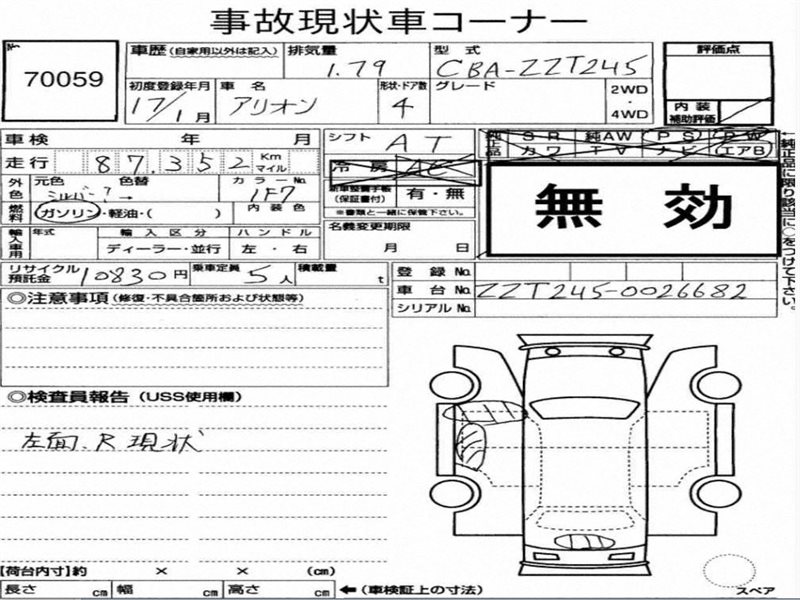 事故現状車コーナー
№ 70059
車歴 (自家用以外は記入) 排気量 1.79 型式 CBA-ZZT245 評価点
初度登録年月 17/1月 車名 アリオン 形状・ドア数 4 グレード 2WD・4WD 内装補助評価
車検 年 月 シフト AT 純正品 SR 純AW PS PW
走行 87,352 Km マイル 冷房 AC カワ TV ナビ エアB
外色 元色 シルバー? 色替 → カラーNo. 1F7 新車整備手帳(保証書付) 有・無
燃料 ガソリン・軽油・( ) 内装色 ※書類と一緒に保管下さい。
無効
←純正品に限り該当に○をつけて下さい。
輸入車用 年式 輸入区分 ディーラー・並行 ハンドル 左・右 名義変更期限 月 日
リサイクル預託金 10830円 乗車定員 5人 積載量 t 登録No.
車台No. ZZT245-0026682
シリアルNo.
◎注意事項(修復・不具合箇所および状態等)
◎検査員報告(USS使用欄)
左面、R現状
【荷台内寸】約 × × (cm)
長さ cm 幅 cm 高さ cm ←(車検証上の寸法)
スペア